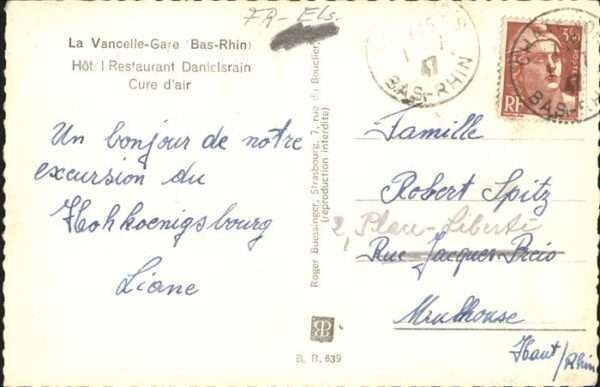 FR-Els.
La Vancelle-Gare (Bas-Rhin)
Hôtel Restaurant Danielsrain
Cure d'air
Un bonjour de notre
excursion du
Hohkoenigsbourg
Liane
Roger Buessinger, Strasbourg, 7, rue du Bouclier
(reproduction interdite)
B. R. 639
47
BAS-RHIN
RF
BAS-RHIN
Famille
Robert Spitz
2, Place-Liberté
Rue Jacques
Mulhouse
Haut/Rhin